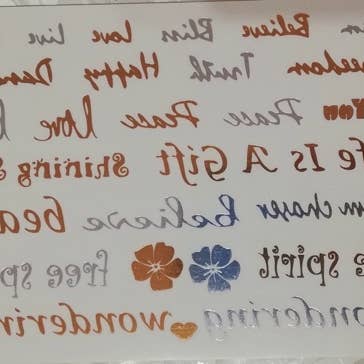 Believe Bliss Love Live
Freedom Truth Happy Dan
Peace Peace Love
fe Is A Gift Shining S
m chaser believe bea
e spirit free sp
ondering wonderin